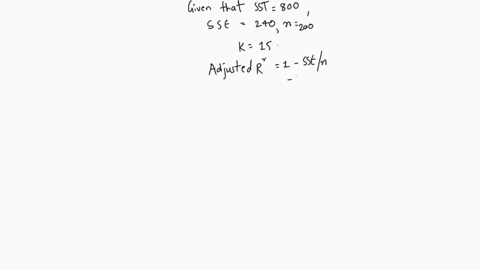 Given that SST = 800,
SSE = 240, n = 200
K = 15.
Adjusted R² = 1 - SSE/n
-